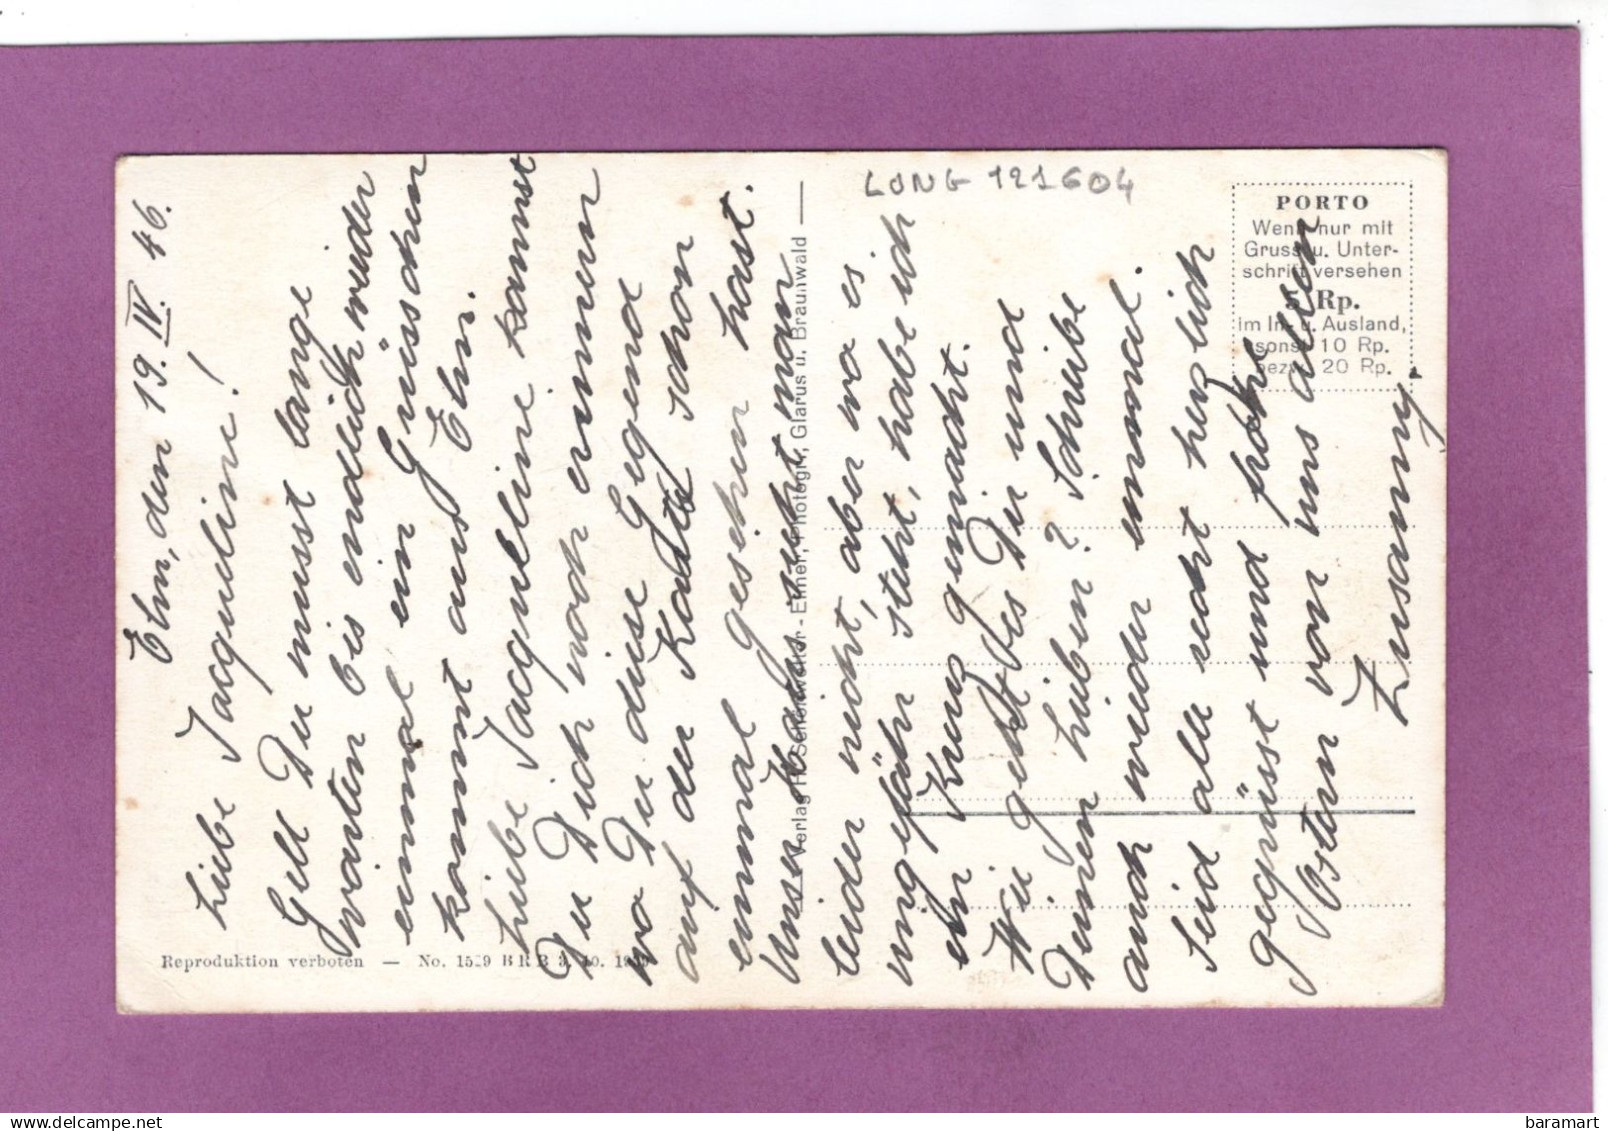 Elm, den 19. IV. 46.
Liebe Jacqueline!
Gelt Du musst lange
warten bis endlich wieder
einmal ein Grüsschen
kommt aus Elm.
Liebe Jaqueline kannst
Du Dich noch erinnern
wo Du diese Gegend
auf der Karte schon
einmal gesehen hast.
Unser Haus sieht man
leider nicht, aber wo es
ungefähr steht, habe ich
ein Kreuz gemacht.
Wie geht es Dir und
Deinen Lieben? Schreibe
auch wieder einmal.
Seid alle recht herzlich
gegrüsst und frohe
Ostern von uns allen
Susanny.
LONG 121604
PORTO
Wenn nur mit
Gruss u. Unter-
schrift versehen
5 Rp.
im In- u. Ausland,
sonst 10 Rp.
bezw. 20 Rp.
Verlag H. Schönwetter - Elmer, Photogr., Glarus u. Braunwald
Reproduktion verboten — No. 1529 BRB 3. 10. 1939
baramart